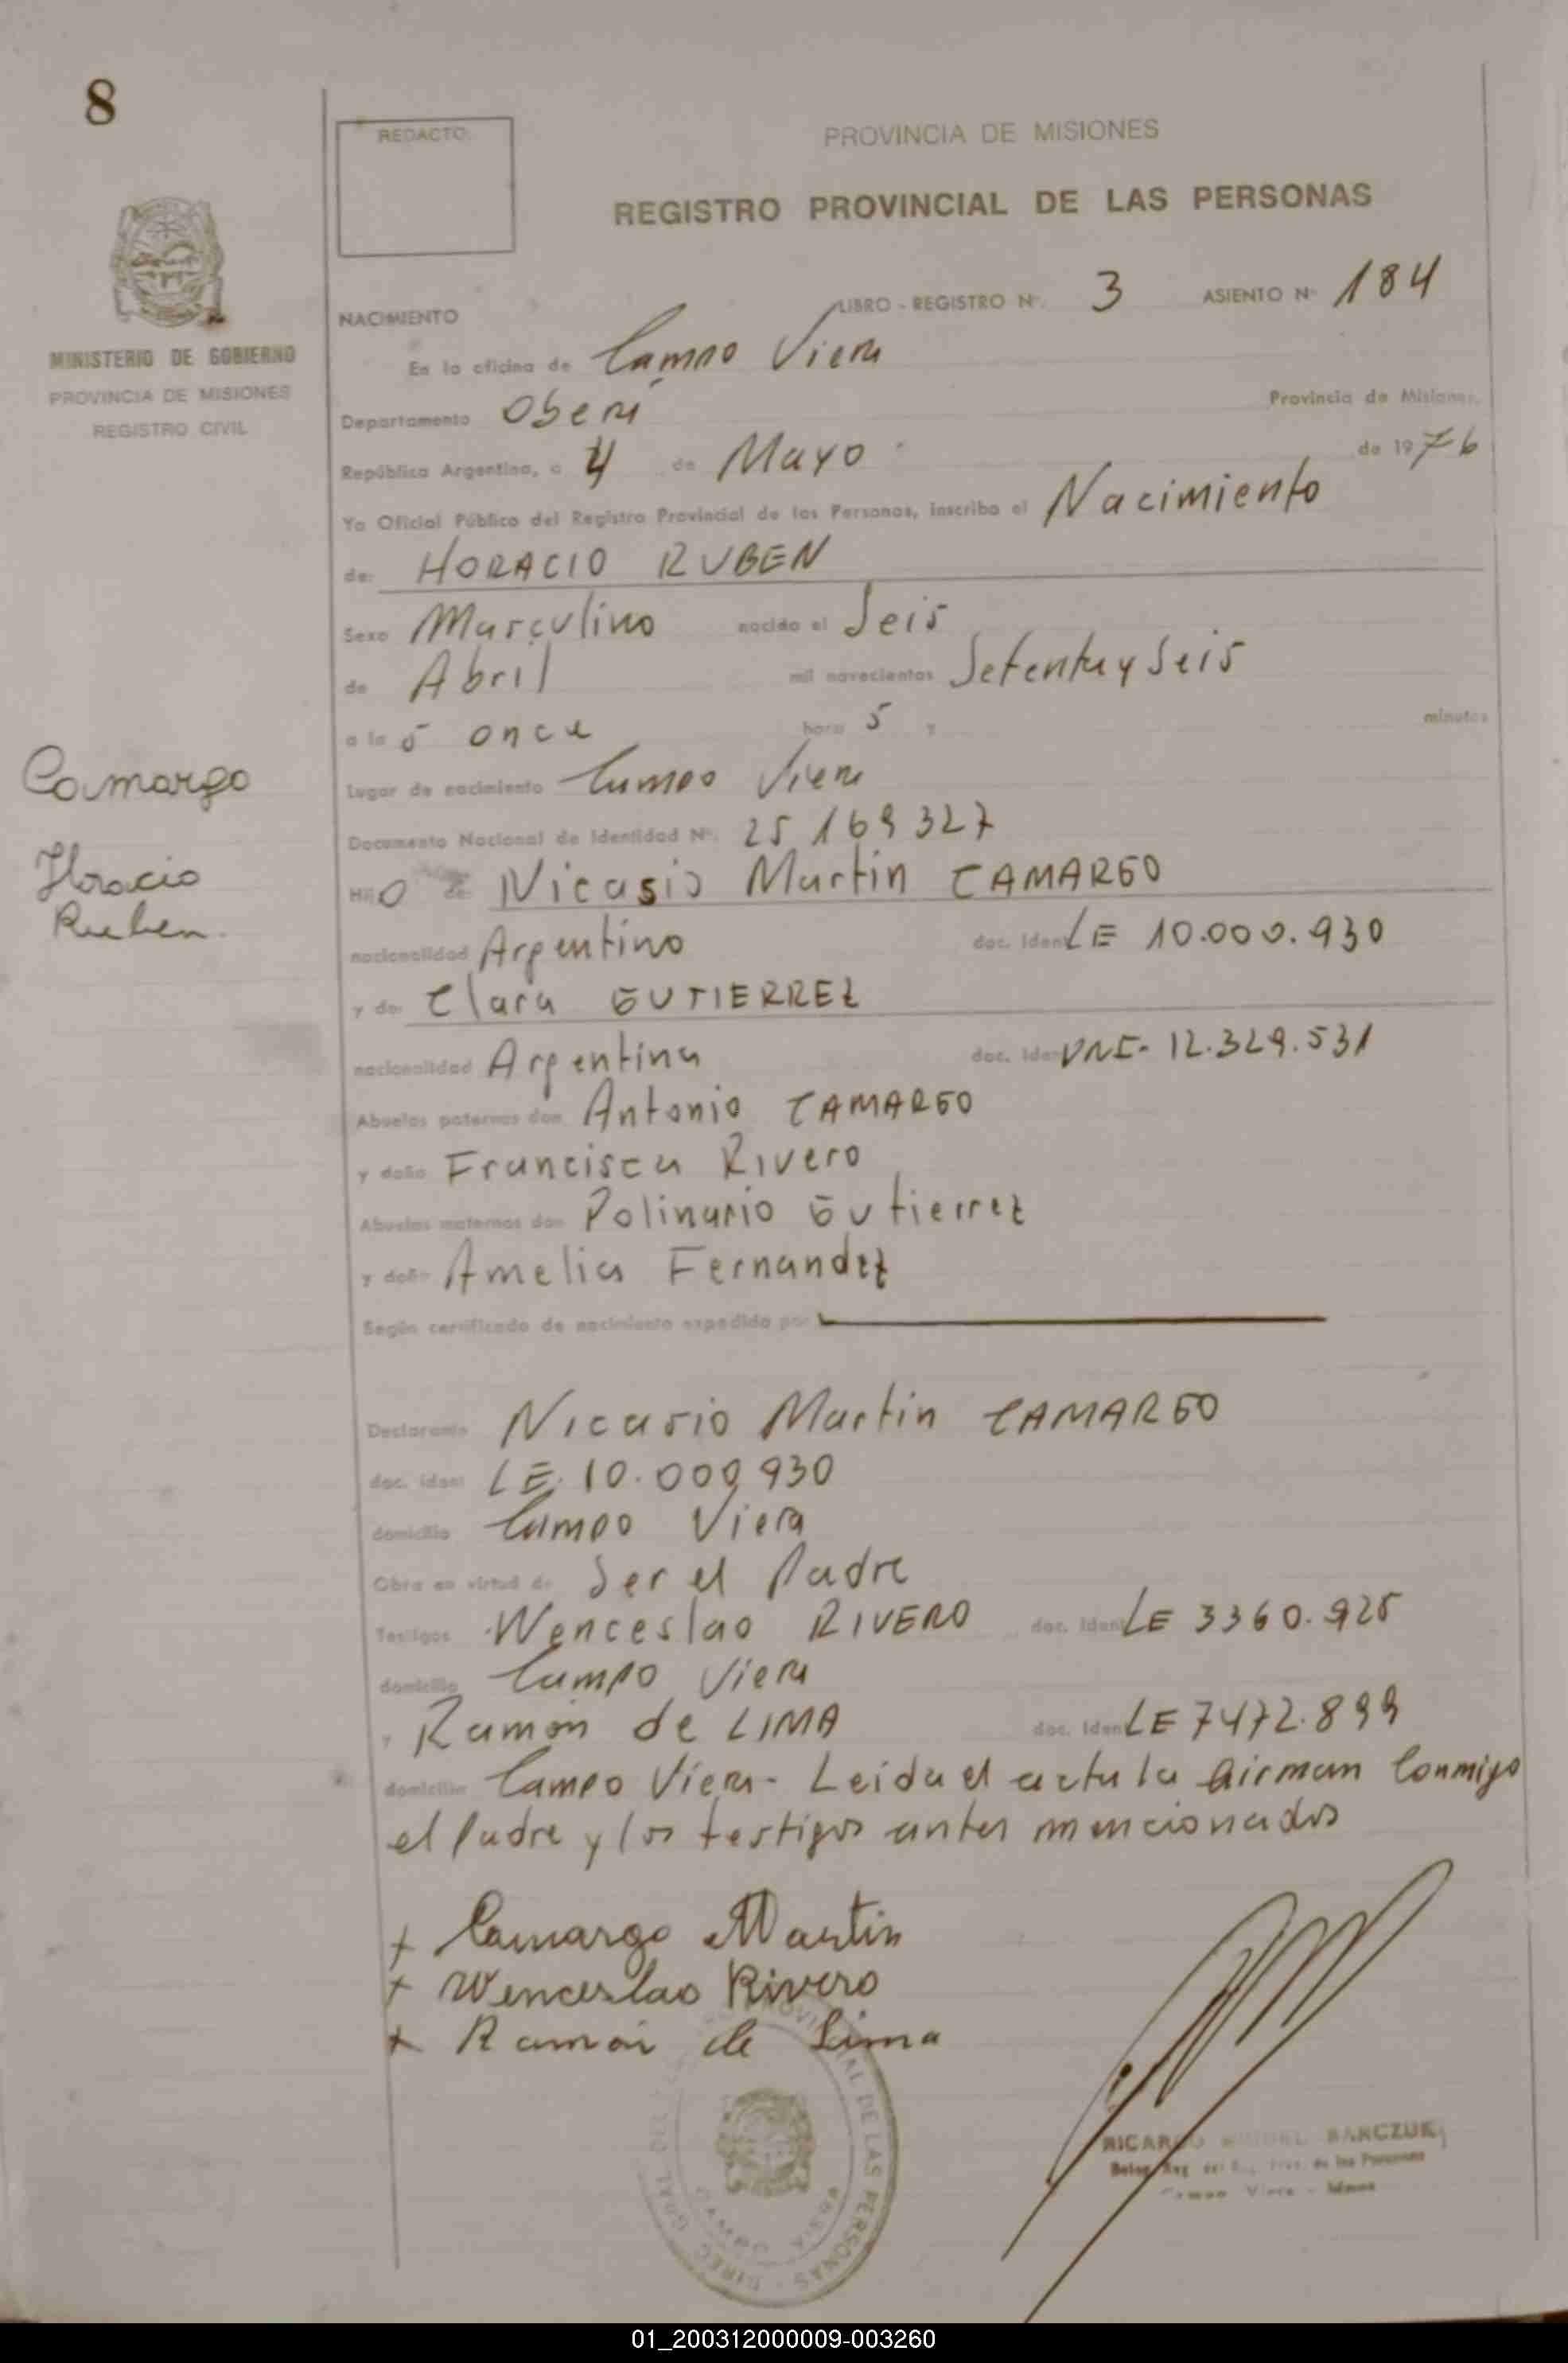 8
REDACTO:
PROVINCIA DE MISIONES
REGISTRO PROVINCIAL DE LAS PERSONAS
MINISTERIO DE GOBIERNO
PROVINCIA DE MISIONES
REGISTRO CIVIL
LIBRO - REGISTRO Nº. 3 ASIENTO Nº 184
NACIMIENTO
En la oficina de Campo Viera
Departamento Oberá Provincia de Misiones,
República Argentina, a 4 de Mayo de 1976
Yo Oficial Público del Registro Provincial de las Personas, inscribo el Nacimiento
de: HORACIO RUBEN
Sexo Masculino nacido el Seis
de Abril mil novecientos Setenta y Seis
a las once hora s y minutos
Lugar de nacimiento Campo Viera
Documento Nacional de Identidad Nº. 25 169 327
Camargo
Horacio
Ruben.
Hijo de Nicasio Martin CAMARGO
nacionalidad Argentino doc. Ident LE 10.000.930
y de: Clara GUTIERREZ
nacionalidad Argentina doc. Ident DNI- 12.329.531
Abuelos paternos don Antonio CAMARGO
y doña Francisca Rivero
Abuelos maternos don Polinario Gutierrez
y doña Amelia Fernandez
Según certificado de nacimiento expedido por
Declarante Nicasio Martin CAMARGO
doc. ident LE. 10.000.930
domicilio Campo Viera
Obra en virtud de Ser el Padre
Testigos Wenceslao RIVERO doc. Ident LE 3360.925
domicilio Campo Viera
y Ramón de LIMA doc. Ident LE 7472.899
domicilio Campo Viera- Leida el acta la firman Conmigo
el Padre y los testigos antes mencionados
+ Camargo Martin
+ Wenceslao Rivero
+ Ramón de Lima
DE LAS PERSONAS - DIREC. GRAL. DEL
CAMPO VIERA
RICARDO MIGUEL BARCZUK
de las Personas
Campo Viera - Mnes
01_200312000009-003260